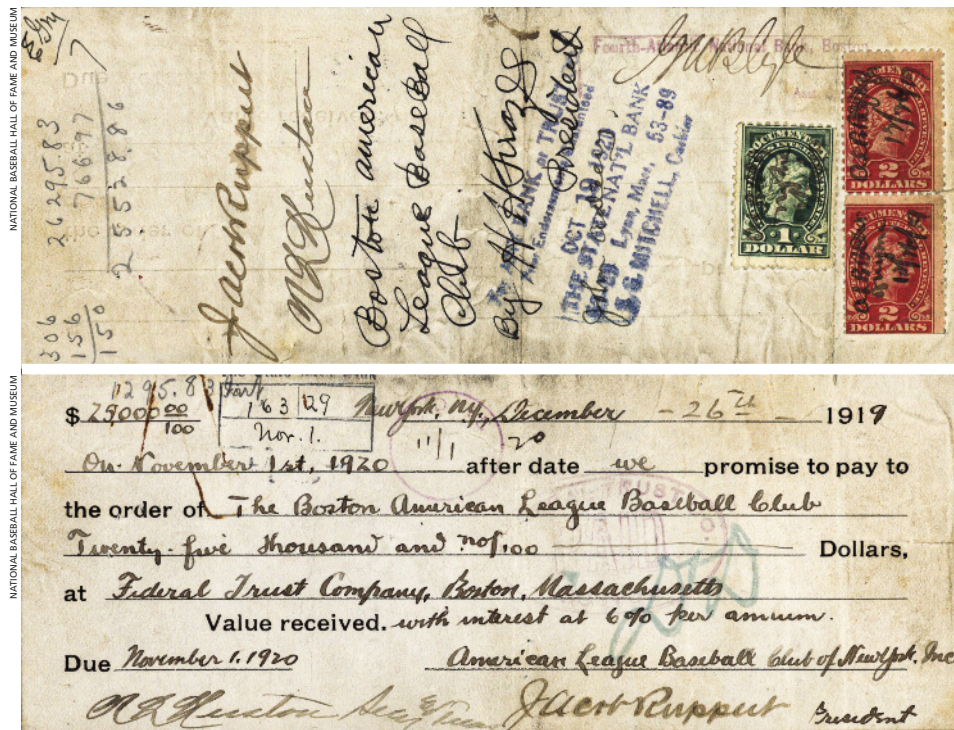 NATIONAL BASEBALL HALL OF FAME AND MUSEUM
306
156
150
26295.83
766.97
25528.86
Jacob Ruppert
Boston American
League Baseball
Club
By H H Frazee
President
ANY BANK OR TRUST
OCT 19 1920
THE STATE NAT'L BANK
Lynn, Mass. 53-89
MITCHELL, Cashier
Fourth-Atlantic National Bank, Boston
DOCUMENTARY
1
DOLLAR
DOCUMENTARY
2
DOLLARS
DOCUMENTARY
2
DOLLARS
NATIONAL BASEBALL HALL OF FAME AND MUSEUM
1295.83
163 129
Nov. 1.
11/1 20
$ 25,000 00/100 New York, N.Y., December - 26th - 1919
On November 1st, 1920 after date we promise to pay to
the order of The Boston American League Baseball Club
Twenty-five thousand and no/100 Dollars,
at Federal Trust Company, Boston, Massachusetts
Value received. with interest at 6% per annum.
Due November 1. 1920 American League Baseball Club of New York, Inc
Jacob Ruppert President